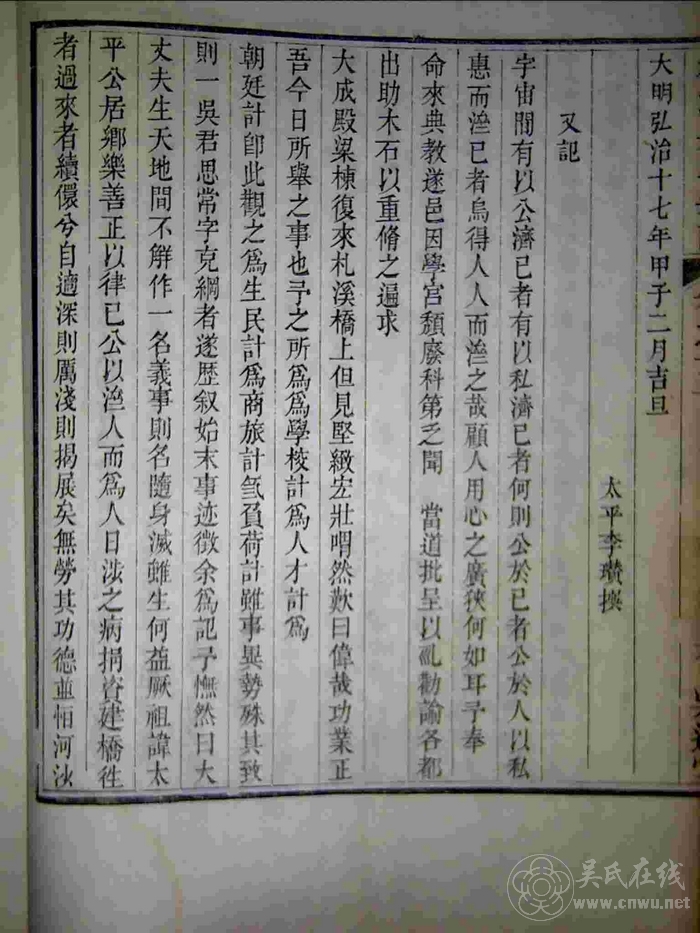 大明弘治十七年甲子二月吉旦
太平李瓚撰
又記
宇宙間有以公濟已者有以私濟已者何則公於已者公於人以私
惠而濟已者烏得人人而濟之哉顧人用心之廣狹何如耳予奉
命來典教遂邑因學宮頹廢科第乏聞 當道批呈以 勸諭各都
出助木石以重脩之遍求
大成殿梁棟復來札溪橋上但見堅緻宏壯喟然歎曰偉哉功業正
吾今日所舉之事也予之所爲爲學校計爲人才計爲
朝廷計卽此觀之爲生民計爲商旅計爲負荷計雖事異勢殊其致
則一吳君思常字克綱者遂歷叙始末事迹徵余爲記予憮然曰大
丈夫生天地間不觧作一名義事則名隨身滅雖生何益厥祖諱太
平公居鄉樂善正以律已公以濟人而爲人日涉之病捐資建橋徃
者過來者續儇兮自適深則厲淺則揭展矣無勞其功德並怕河沙
吴氏在线
www.cnwu.net